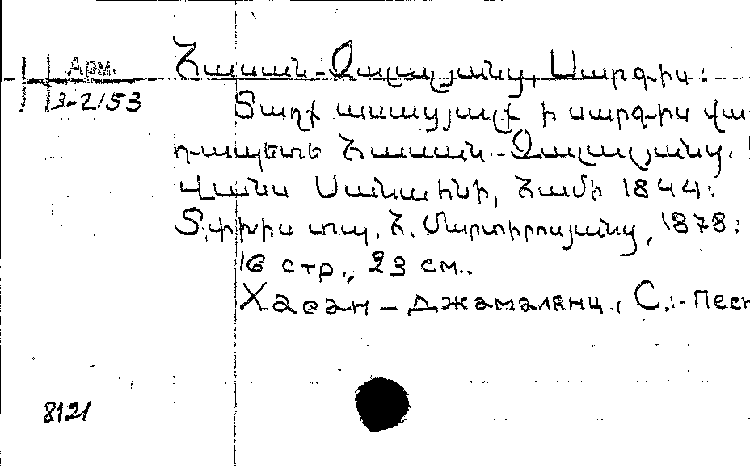 Арм.
3-2/53
Հասան-Ջալալյանց, Սարգիս:
Տաղք ասացյալք ի սարգիս վա
րդապետե Հասան-Ջալալյանց.
Վանս Սանահնի, Համի 1844:
Տփխիս տպ. Հ. Մարտիրոսյանց, 1878:
16 стр., 23 см.
Хасан-Джамалянц, С.:-Песн
8121